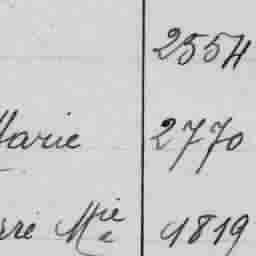 2554
Marie 2770
rré Mie 1819